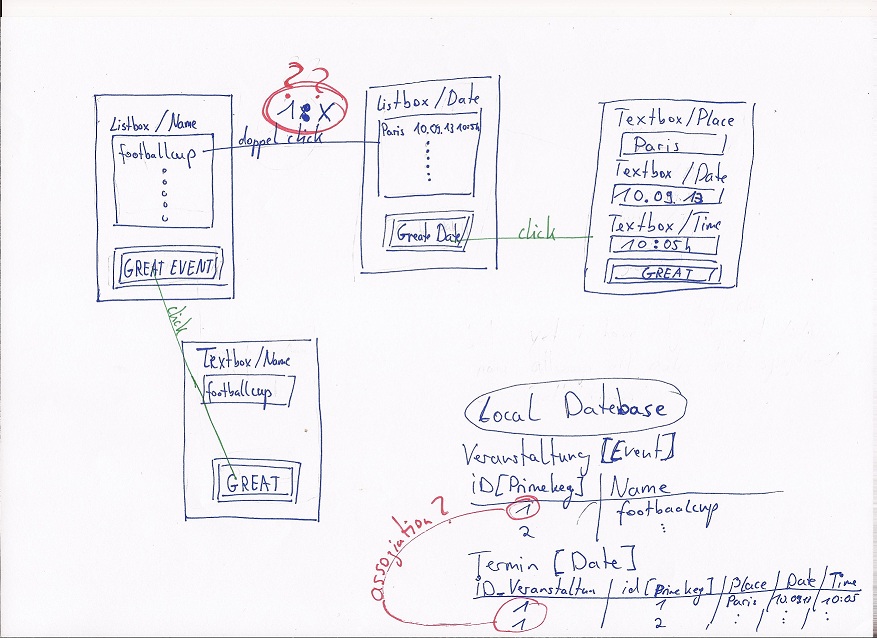 ??
1:X
Listbox/Name
footballcup
doppel click
GREAT EVENT
click
Textbox/Name
footballcup
GREAT
Listbox/Date
Paris 10.09.13 10:05h
Greate Date
click
Textbox/Place
Paris
Textbox/Date
10.09.13
Textbox/Time
10:05h
GREAT
Local Datebase
Veranstaltung [Event]
iD[Primekey] Name
1 footbaalcup
2
assoziation?
Termin [Date]
iD_Veranstaltun / id [Primekey] / Place / Date / Time
1 1 Paris 10.0913 10:05
1 2